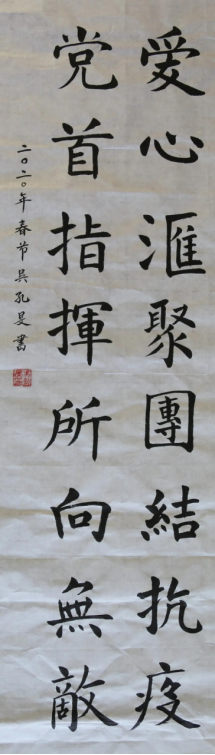 愛心滙聚團結抗疫
党首指揮所向無敵
二〇二〇年春节吴孔旻書